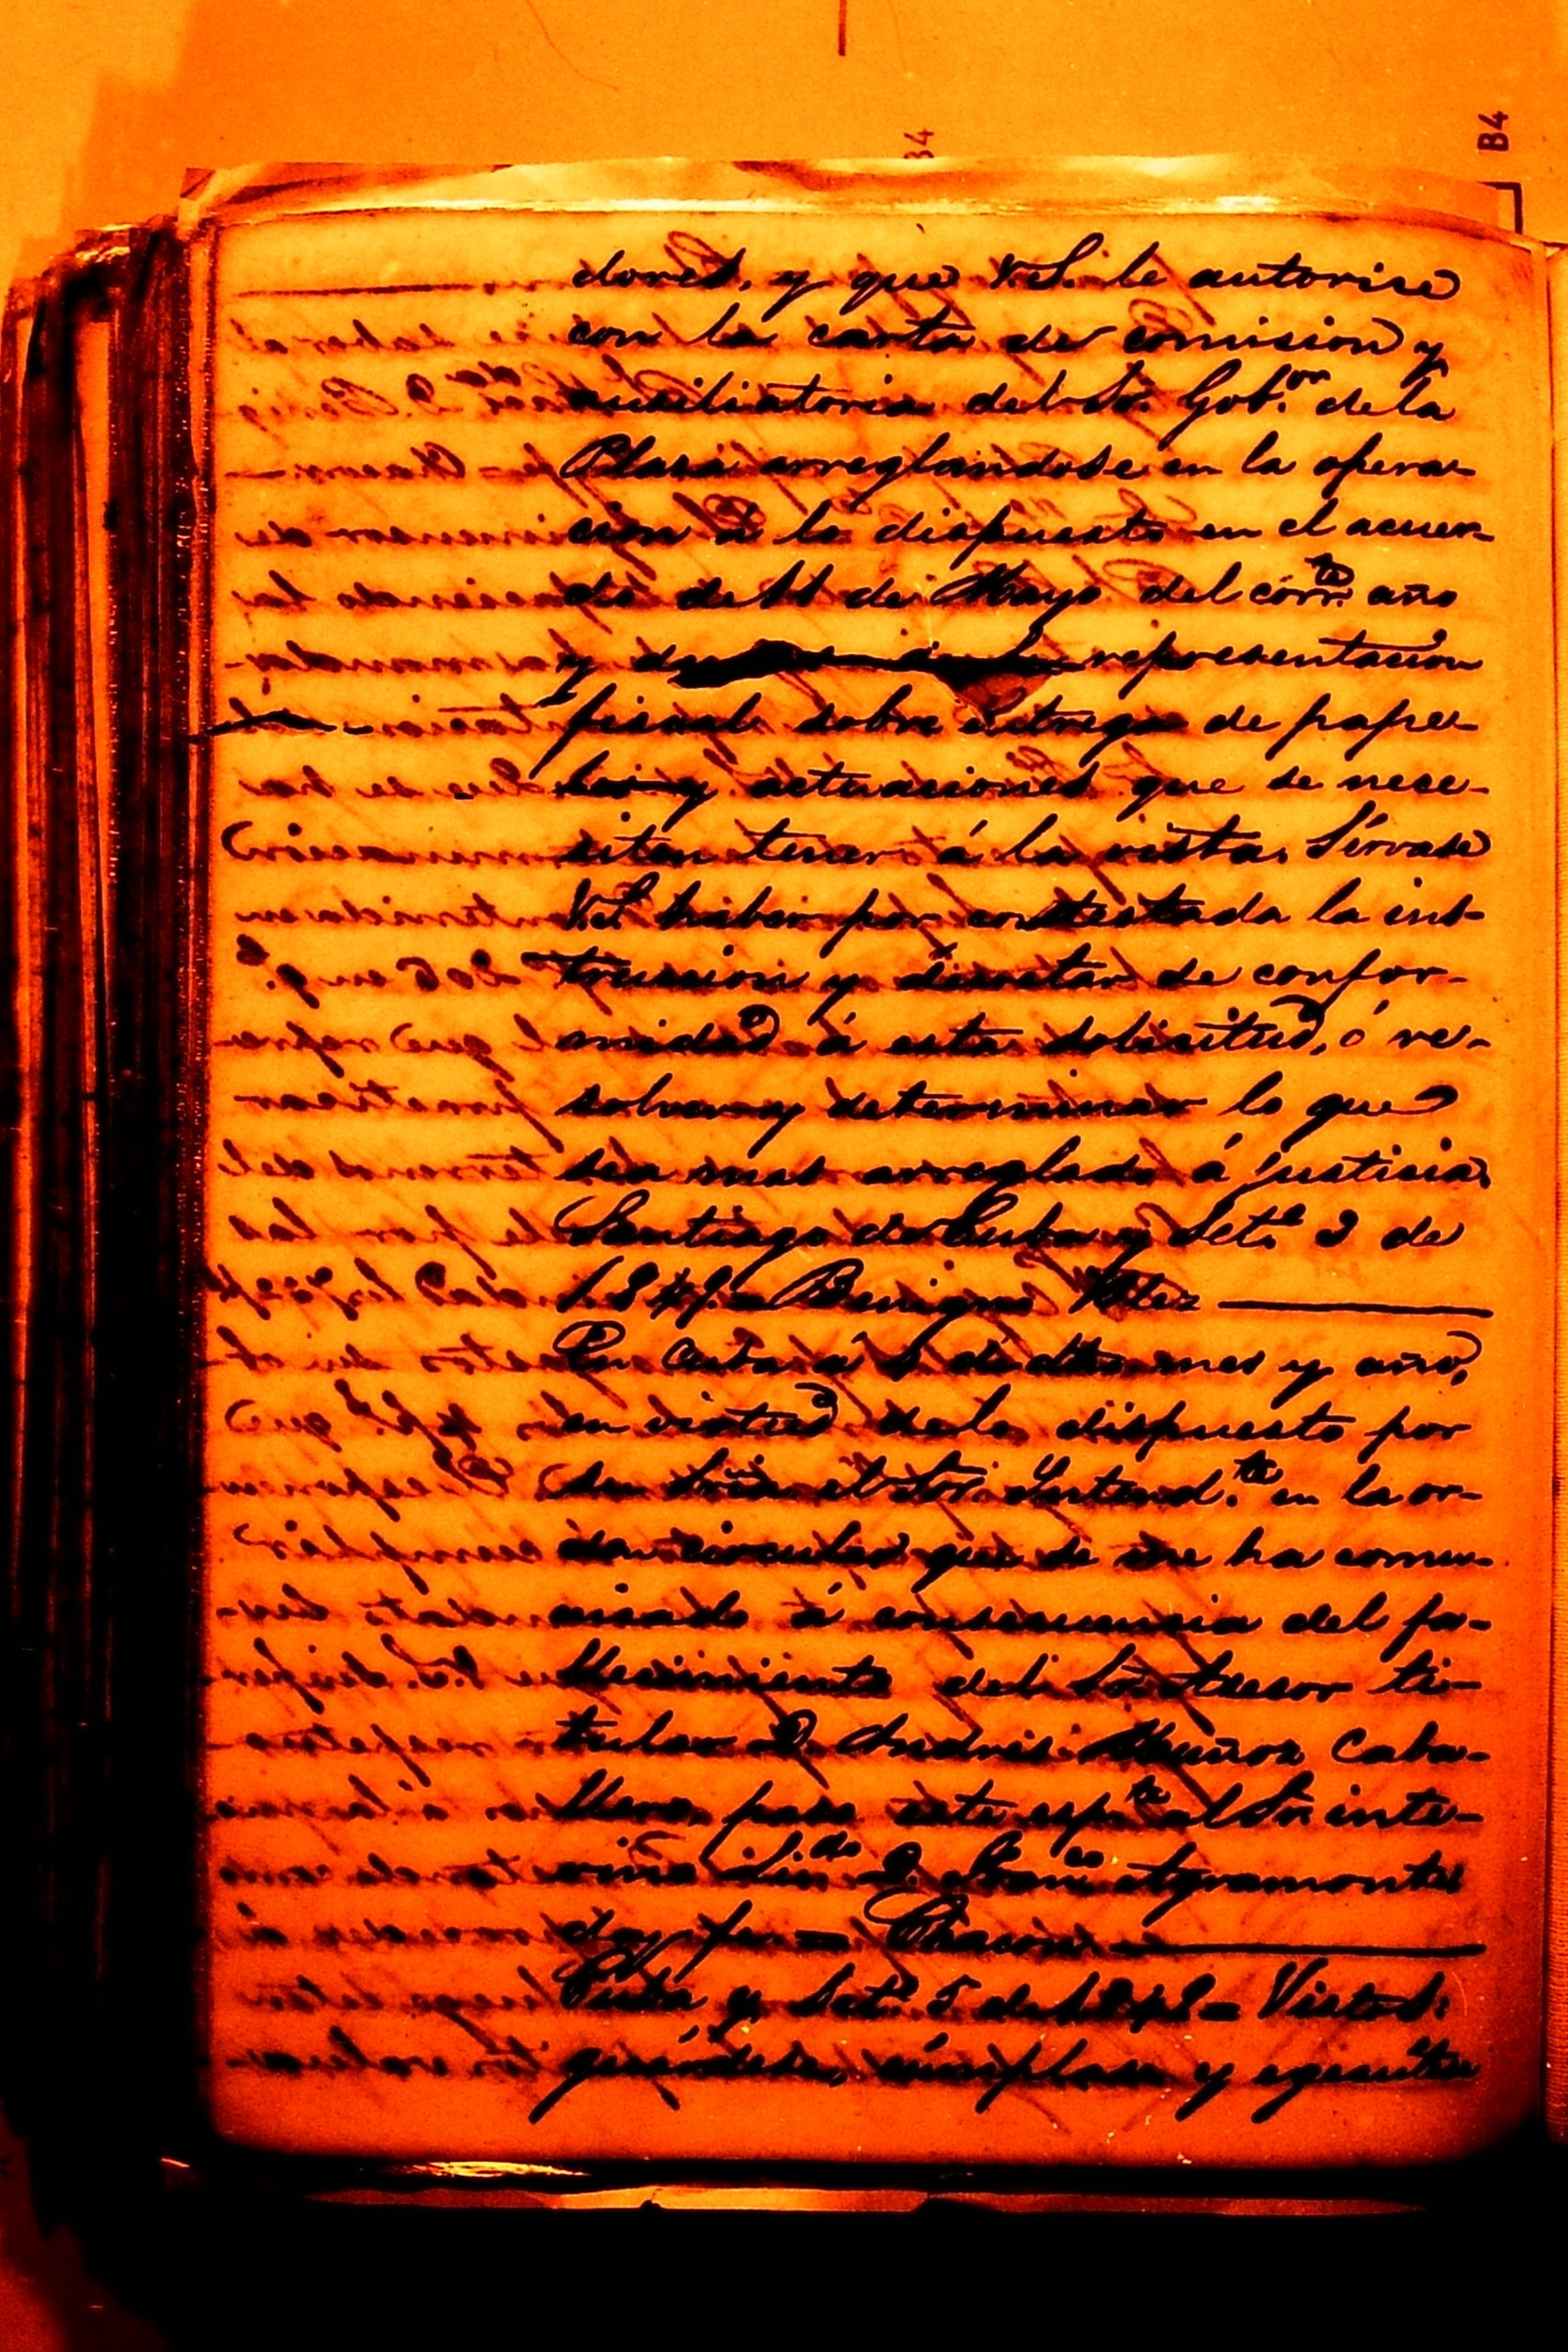 B4
B4
dores, y que V.S. le autorise
con la carta de comision y
ausiliatoria del Sr. Gob.or de la
Plasa arreglandose en la opera-
cion á lo dispuesto en el acuer-
do de 11 de Mayo del corr.te año
y representacion
fiscal sobre entrega de pape-
les y actuaciones que se nece-
siten tener á la vista. Sirvase
V.S. haber por contestada la ins-
truccion y decretar de confor-
midad á esta solicitud, ó re-
solver y determinar lo que
sea mas arreglado á justicia.
Santiago de Cuba y Set.e 3 de
184 Benigno
En Cuba á de dho mes y año,
en virtud de lo dispuesto por
su Sria el Sor. Intend.te en la or-
den circular que se me ha comu-
nicado á consecuencia del fa-
llecimiento del Sr. Asesor ti-
tular D. Andres Muñoz Caba-
llero, paso este esp.te al Sr. inte-
rino Lic.do D. Fran.co Agramonte
doy fe = Chacon
Cuba y Set.e 5 de 184 = Vistos:
guárdese, cúmplase y egecútese